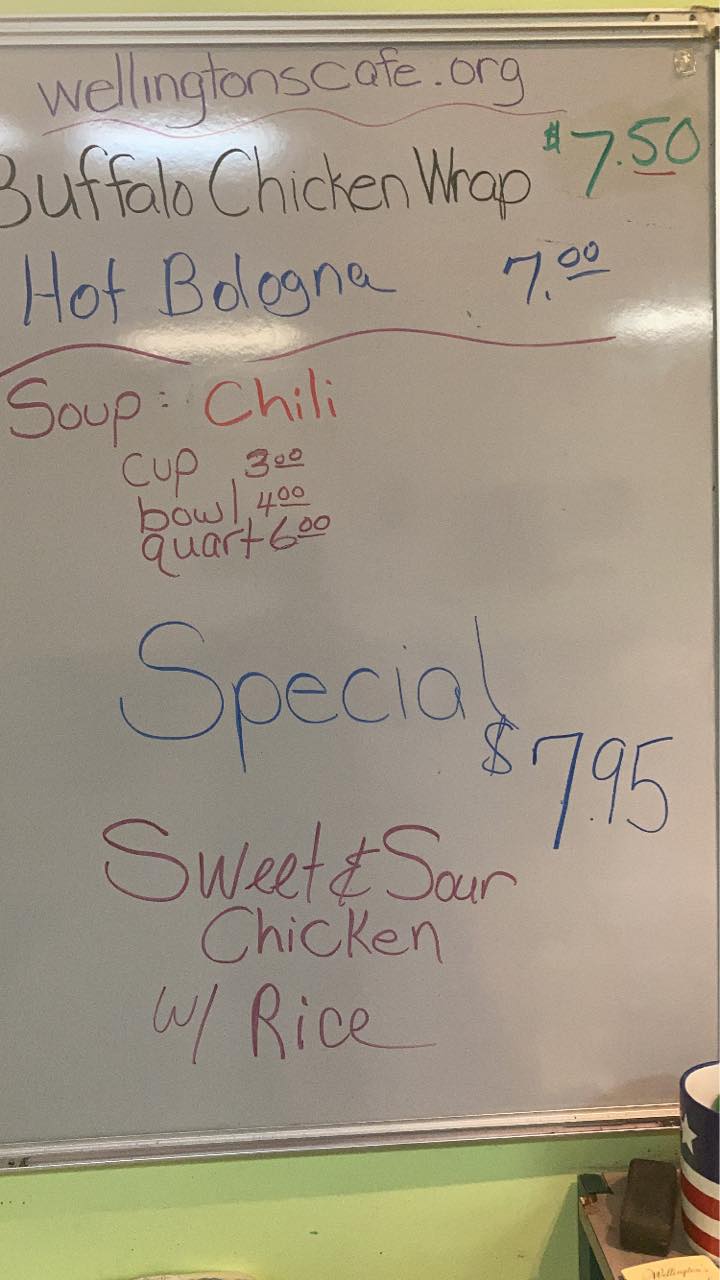 wellingtonscafe.org
Buffalo Chicken Wrap $7.50
Hot Bologna 7.00
Soup: Chili
cup 3.00
bowl 4.00
quart 6.00
Special
$7.95
Sweet & Sour
Chicken
w/ Rice
Wellington's